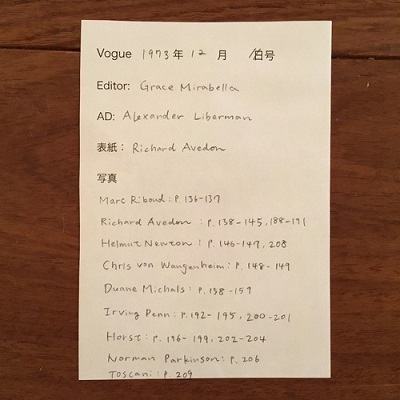 Vogue 1973年 12 月 /日号
Editor: Grace Mirabella
AD: Alexander Liberman
表紙： Richard Avedon
写真
Marc Riboud : P. 136-137
Richard Avedon : P. 138-145, 188-191
Helmut Newton : P. 146-147, 208
Chris von Wangenheim : P. 148-149
Duane Michals : P. 158-159
Irving Penn : P. 192-195, 200-201
Horst : P. 196-199, 202-204
Norman Parkinson : P. 206
Toscani : P. 209